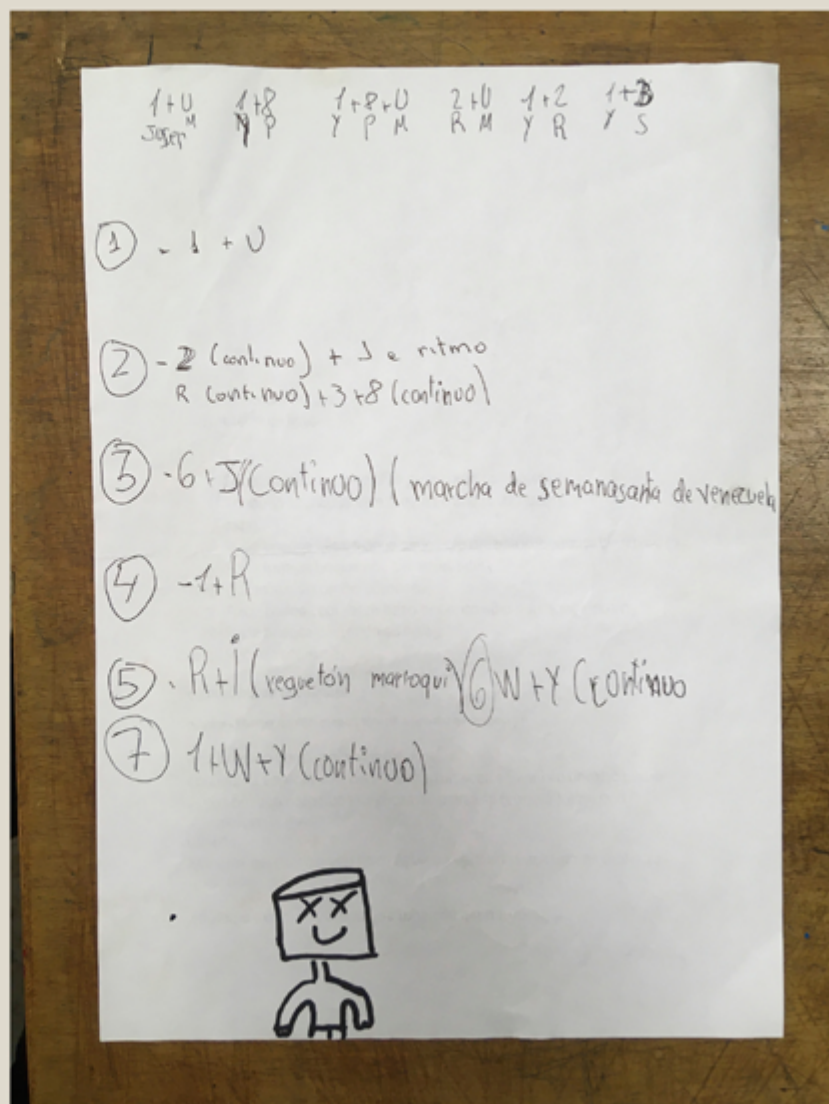 1+U 1+8 1+8+U 2+U 1+2 1+3
M Y P Y P M R M Y R Y S
Josep
① - 1 + U
② - 2 (continuo) + J e ritmo
R (continuo) + 3 + 8 (continuo)
③ - 6 + J (Continuo) ( marcha de semanasanta de venezuela
④ - 1 + R
⑤ - R + i (reguetón marroqui) ⑥ W + Y (continuo
⑦ 1 + W + Y (continuo)